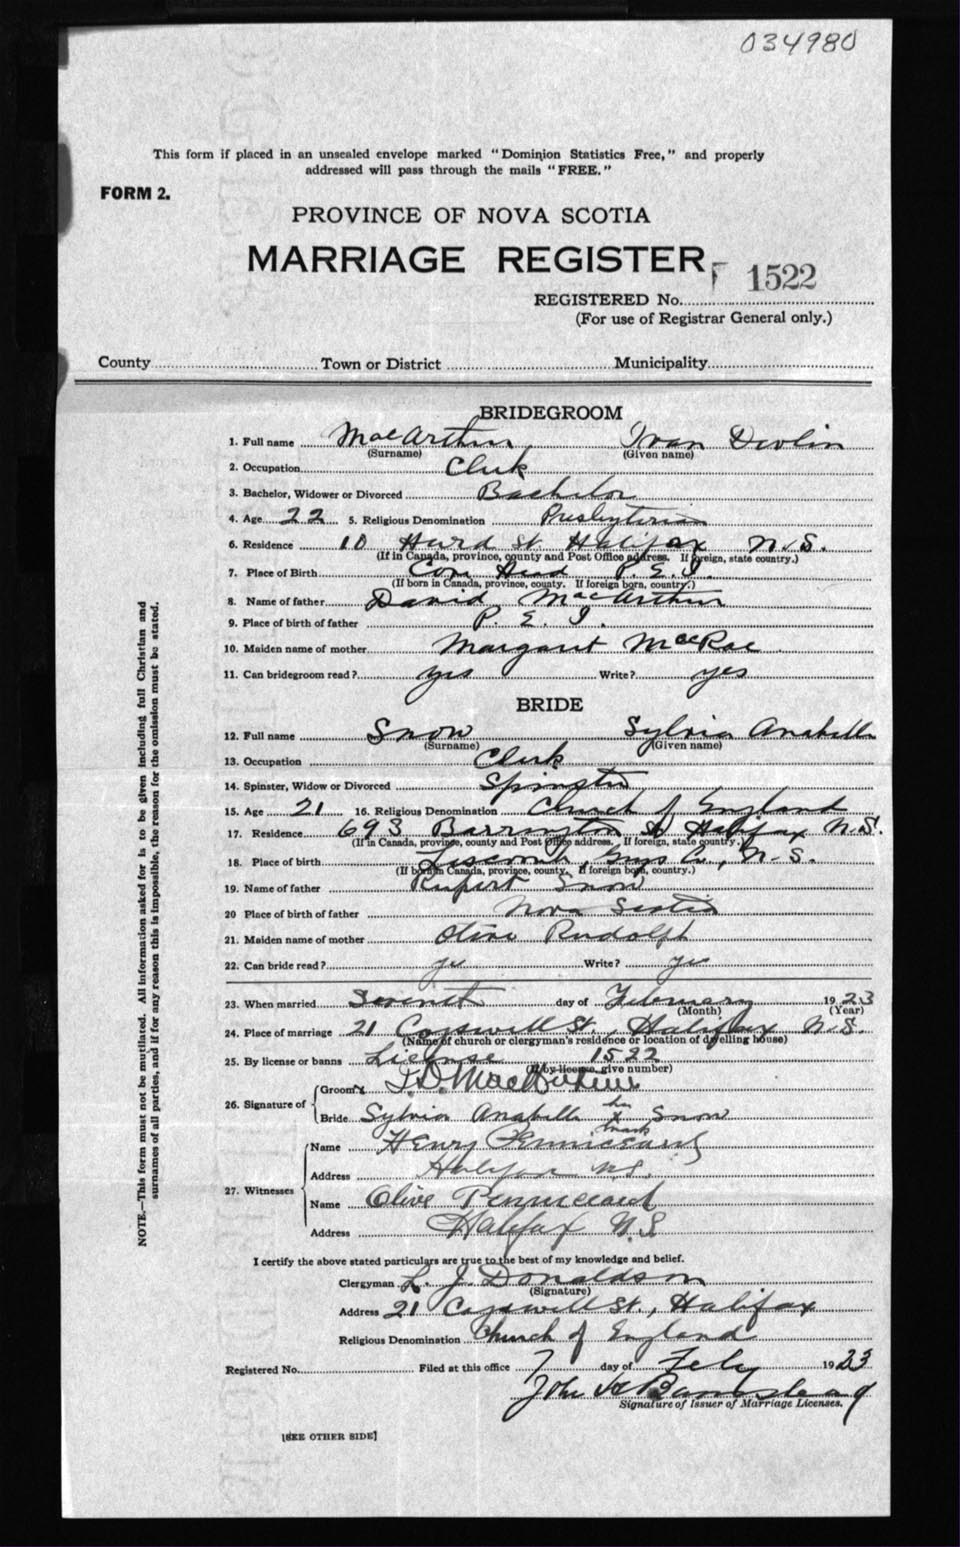 034980
This form if placed in an unsealed envelope marked "Dominion Statistics Free," and properly
addressed will pass through the mails "FREE."
FORM 2.
PROVINCE OF NOVA SCOTIA
MARRIAGE REGISTER
1522
REGISTERED No.
(For use of Registrar General only.)
County Town or District Municipality
BRIDEGROOM
1. Full name MacArthur Ivan Devlin
(Surname) (Given name)
2. Occupation Clerk
3. Bachelor, Widower or Divorced Bachelor
4. Age 22 5. Religious Denomination Presbyterian
6. Residence 10 Hurd St. Halifax N.S.
(If in Canada, province, county and Post Office address. If foreign, state country.)
7. Place of Birth Head P.E.I.
(If born in Canada, province, county. If foreign born, country.)
8. Name of father David MacArthur
9. Place of birth of father P. E. I.
10. Maiden name of mother Margaret MacRae
11. Can bridegroom read? yes Write? yes
BRIDE
12. Full name Snow Sylvia Anabelle
(Surname) (Given name)
13. Occupation Clerk
14. Spinster, Widow or Divorced Spinster
15. Age 21 16. Religious Denomination Church of England
17. Residence 693 Barrington St Halifax N.S.
(If in Canada, province, county and Post Office address. If foreign, state country.)
18. Place of birth Liscomb, Guys Co., N.S.
(If born in Canada, province, county. If foreign born, country.)
19. Name of father Rupert Snow
20 Place of birth of father Nova Scotia
21. Maiden name of mother Olive Rudolph
22. Can bride read? yes Write? yes
23. When married Seventh day of February 1923
(Month) (Year)
24. Place of marriage 21 Cogswell St., Halifax N.S.
(Name of church or clergyman's residence or location of dwelling house)
25. By license or banns License 1522
(If by license, give number)
26. Signature of
Groom I. D. MacArthur
Bride Sylvia Anabelle her x mark Snow
27. Witnesses
Name Henry
Address Halifax N.S.
Name Olive
Address Halifax N.S
I certify the above stated particulars are true to the best of my knowledge and belief.
Clergyman L. J. Donaldson
(Signature)
Address 21 Cogswell St., Halifax
Religious Denomination Church of England
Registered No. Filed at this office 7 day of Feby 1923
John
Signature of Issuer of Marriage Licenses.
[SEE OTHER SIDE]
NOTE.—This form must not be mutilated. All information asked for is to be given including full Christian and
surnames of all parties, and if for any reason this is impossible, the reason for the omission must be stated.